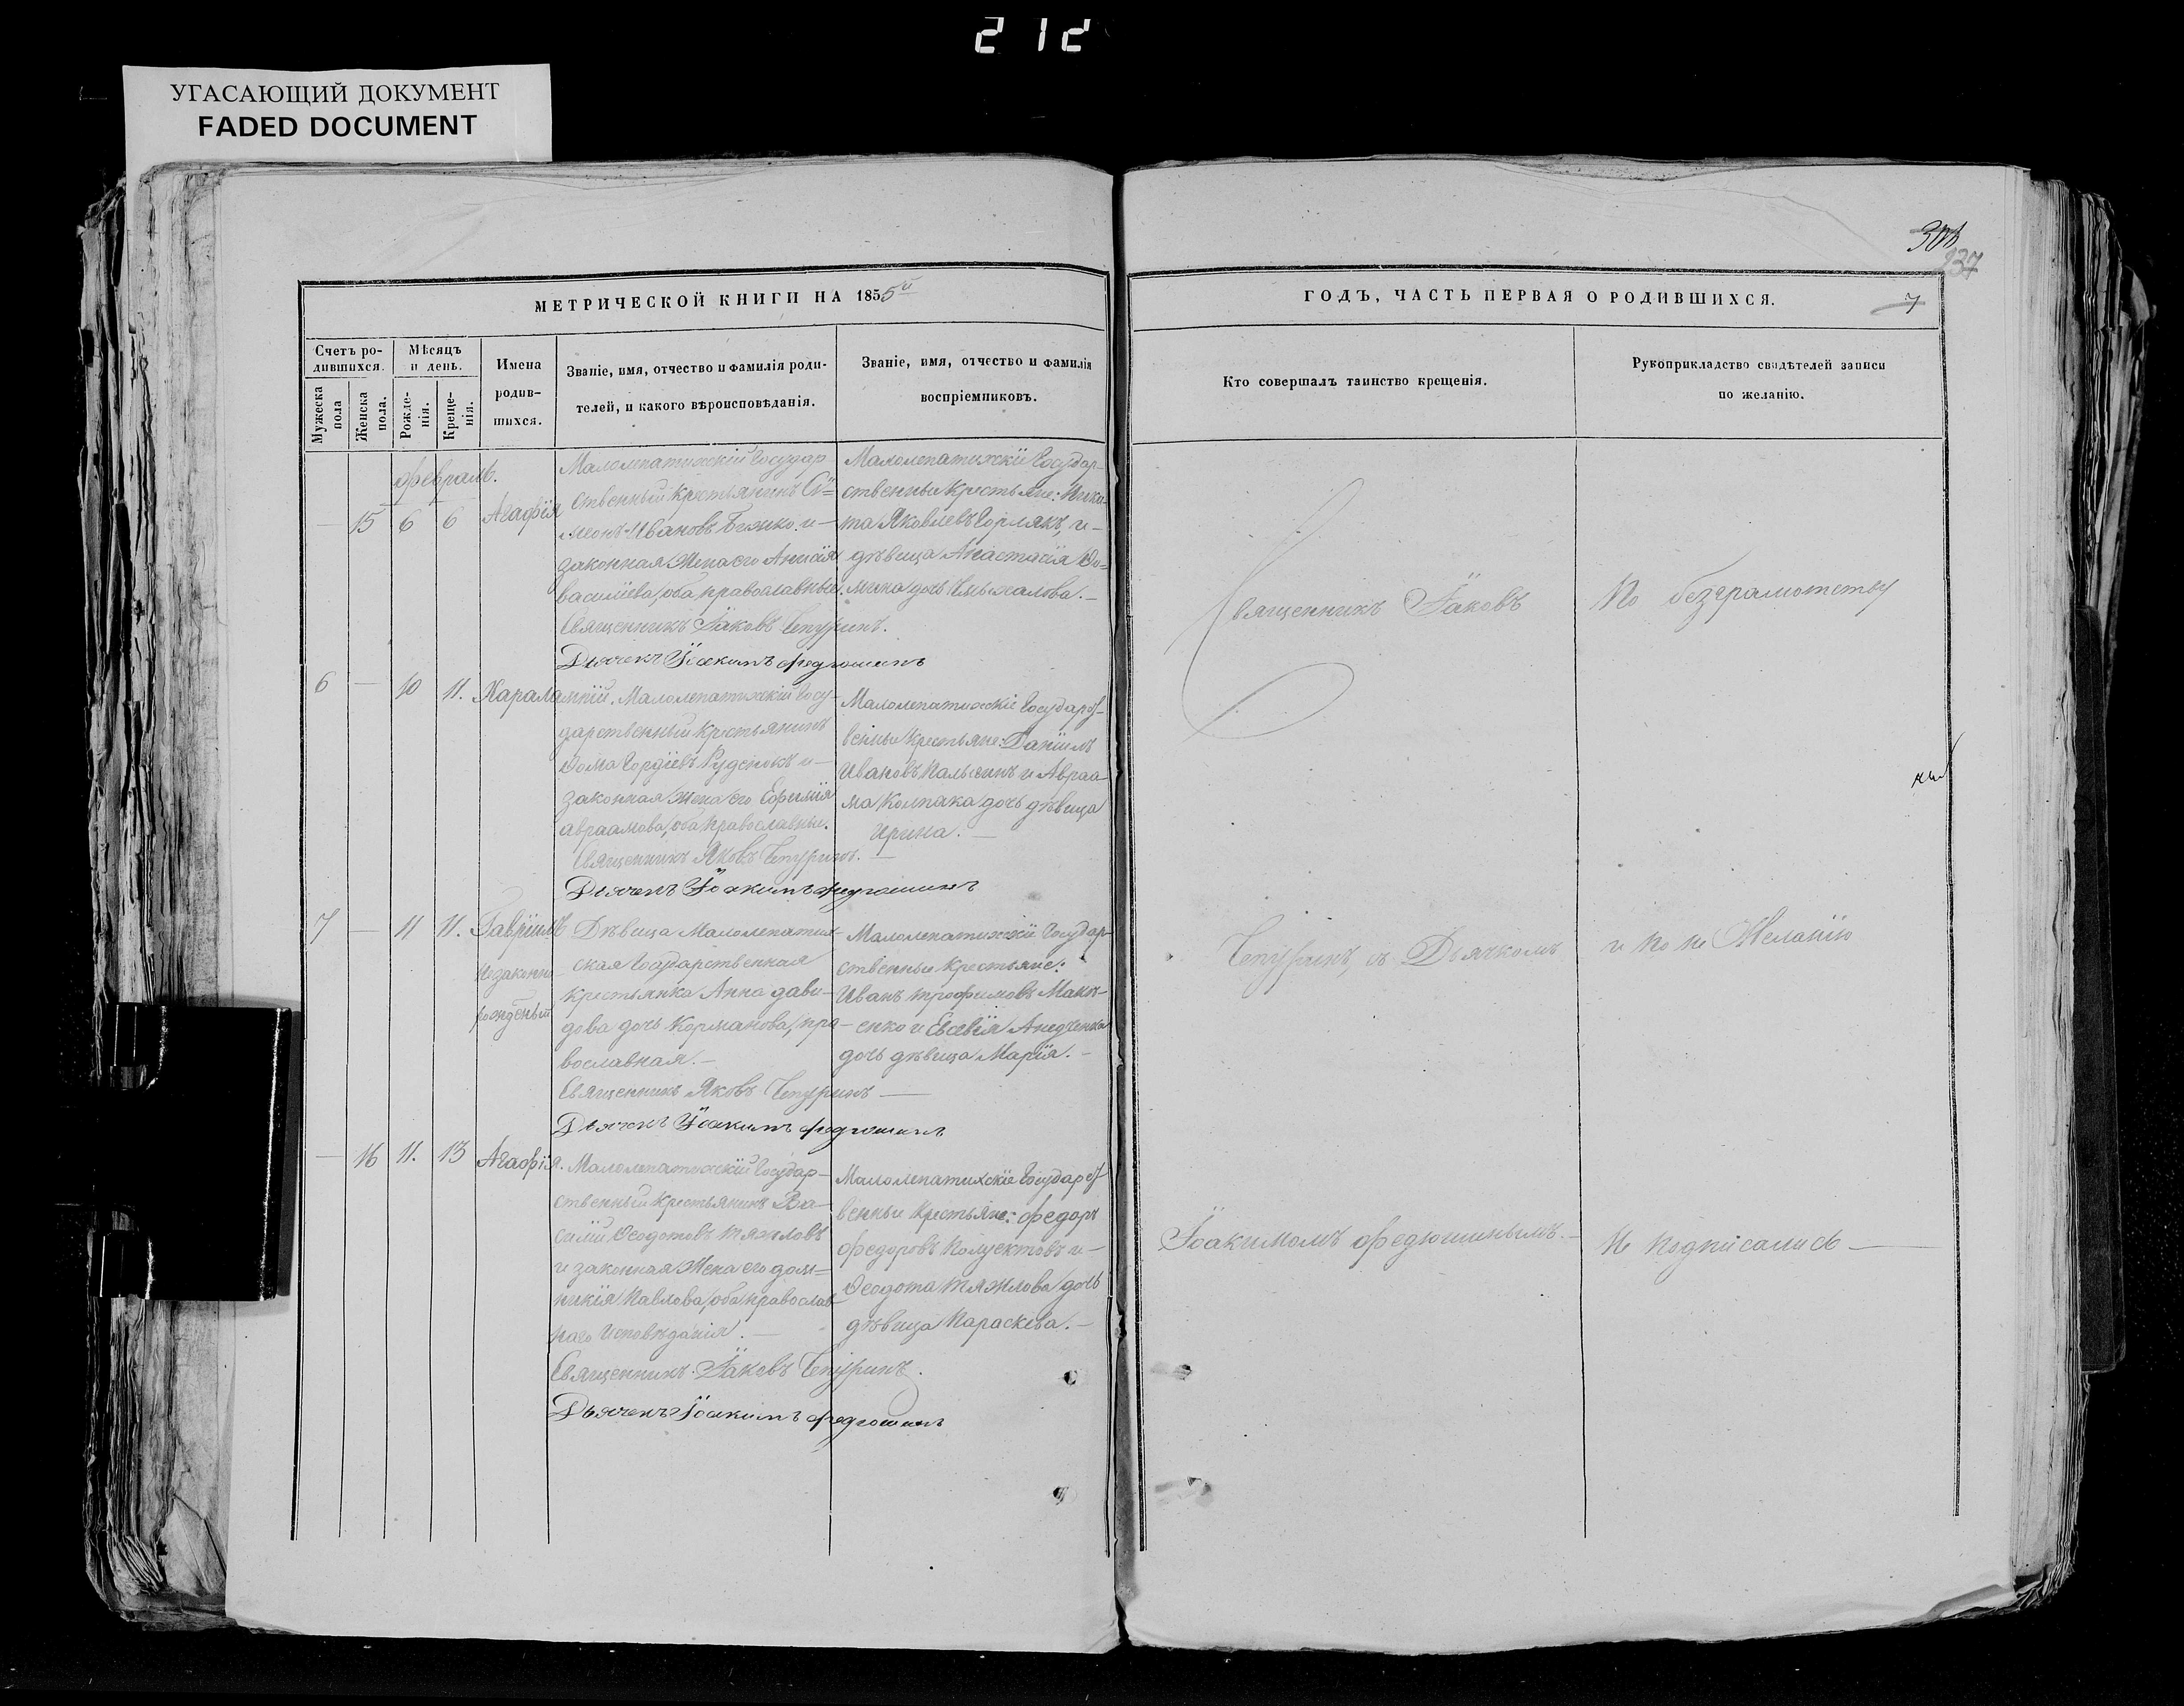 212
УГАСАЮЩИЙ ДОКУМЕНТ
FADED DOCUMENT
237
7
МЕТРИЧЕСКОЙ КНИГИ НА 1855й
ГОДЪ, ЧАСТЬ ПЕРВАЯ О РОДИВШИХСЯ.
Счетъ ро-
дившихся.
Мужеска
пола
Женска
пола.
Мѣсяцъ
и день.
Рожде-
нія.
Креще-
нія.
Имена
родив-
шихся.
Званіе, имя, отчество и фамилія роди-
телей, и какого вѣроисповѣданія.
Званіе, имя, отчество и фамилія
воспріемниковъ.
Кто совершалъ таинство крещенія.
Рукоприкладство свидѣтелей записи
по желанію.
февраль.
— 15 6 6 Агафія
Малолепатихскій Государ
ственный крестьянинъ Си=
меонъ Ивановъ и—
законная Жена его Анисія
василіева, оба православные.
Священникъ Іаковъ Чепуринъ.
Дьячекъ Іоакимъ Федюшинъ
Малолепатихскіе Государ-
ственные Крестьяне: Ники-
та Яковлевъ Горлякъ, и—
дѣвица Анастасія Ѳо=
мина дочь
6 — 10 11. Харалампій.
Малолепатихскій Госу-
дарственный крестьянинъ
Ѳома Гордіевъ Руденокъ и—
законная Жена его Ефимія
авраамова, оба православные.
Священникъ Яковъ Чепуринъ.—
Дьячекъ Іоакимъ Федюшинъ
Малолепатихскіе Государст-
венные Крестьяне: Даніилъ
Ивановъ и Авраа-
ма Колпака дочь дѣвица
Ирина.—
7 — 11 11. Гавріилъ
незаконно-
рожденый
Дѣвица Малолепатих-
ская Государственная
Крестьянка Анна дави-
дова дочь Корманова, пра-
вославная.—
Священникъ Яковъ Чепуринъ—
Дьячекъ Іоакимъ Федюшинъ
Малолепатихскіе Государ-
ственные Крестьяне:
Иванъ трофимовъ
енко и Евсевія
дочь дѣвица Марія.—
— 16 11. 13 Агафія.
Малолепатихскій Государ-
ственный Крестьянинъ Ва-
силій Ѳеодотовъ тяжловъ
и законная Жена его дом=
никія Павлова, оба православ-
наго Исповѣданія.—
Священникъ Іаковъ Чепуринъ.
Дьячекъ Іоакимъ Федюшинъ
Малолепатихскіе Государст-
венные Крестьяне: Федоръ
Федоровъ Полуектовъ и—
Ѳеодота тяжлова дочь
дѣвица Параскева.—
Священникъ Іаковъ
Чепуринъ, съ Дьячкомъ
Іоакимомъ Федюшинымъ.—
По безграмотству
и по не Желанію
не подписались—